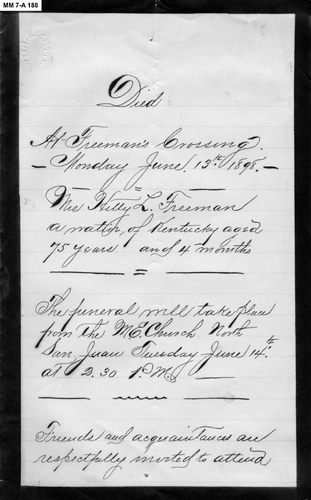 MM 7-A 188
Died
At Freeman's Crossing.
- Monday June 13th 1898. -
Mrs Hetty L. Freeman
a native, of Kentucky aged
75 years and 4 months
The funeral will take place
from the M.E. Church North
San Juan Tuesday June 14th.
at 2.30 P.M.
Friends and acquaintances are
respectfully invited to attend